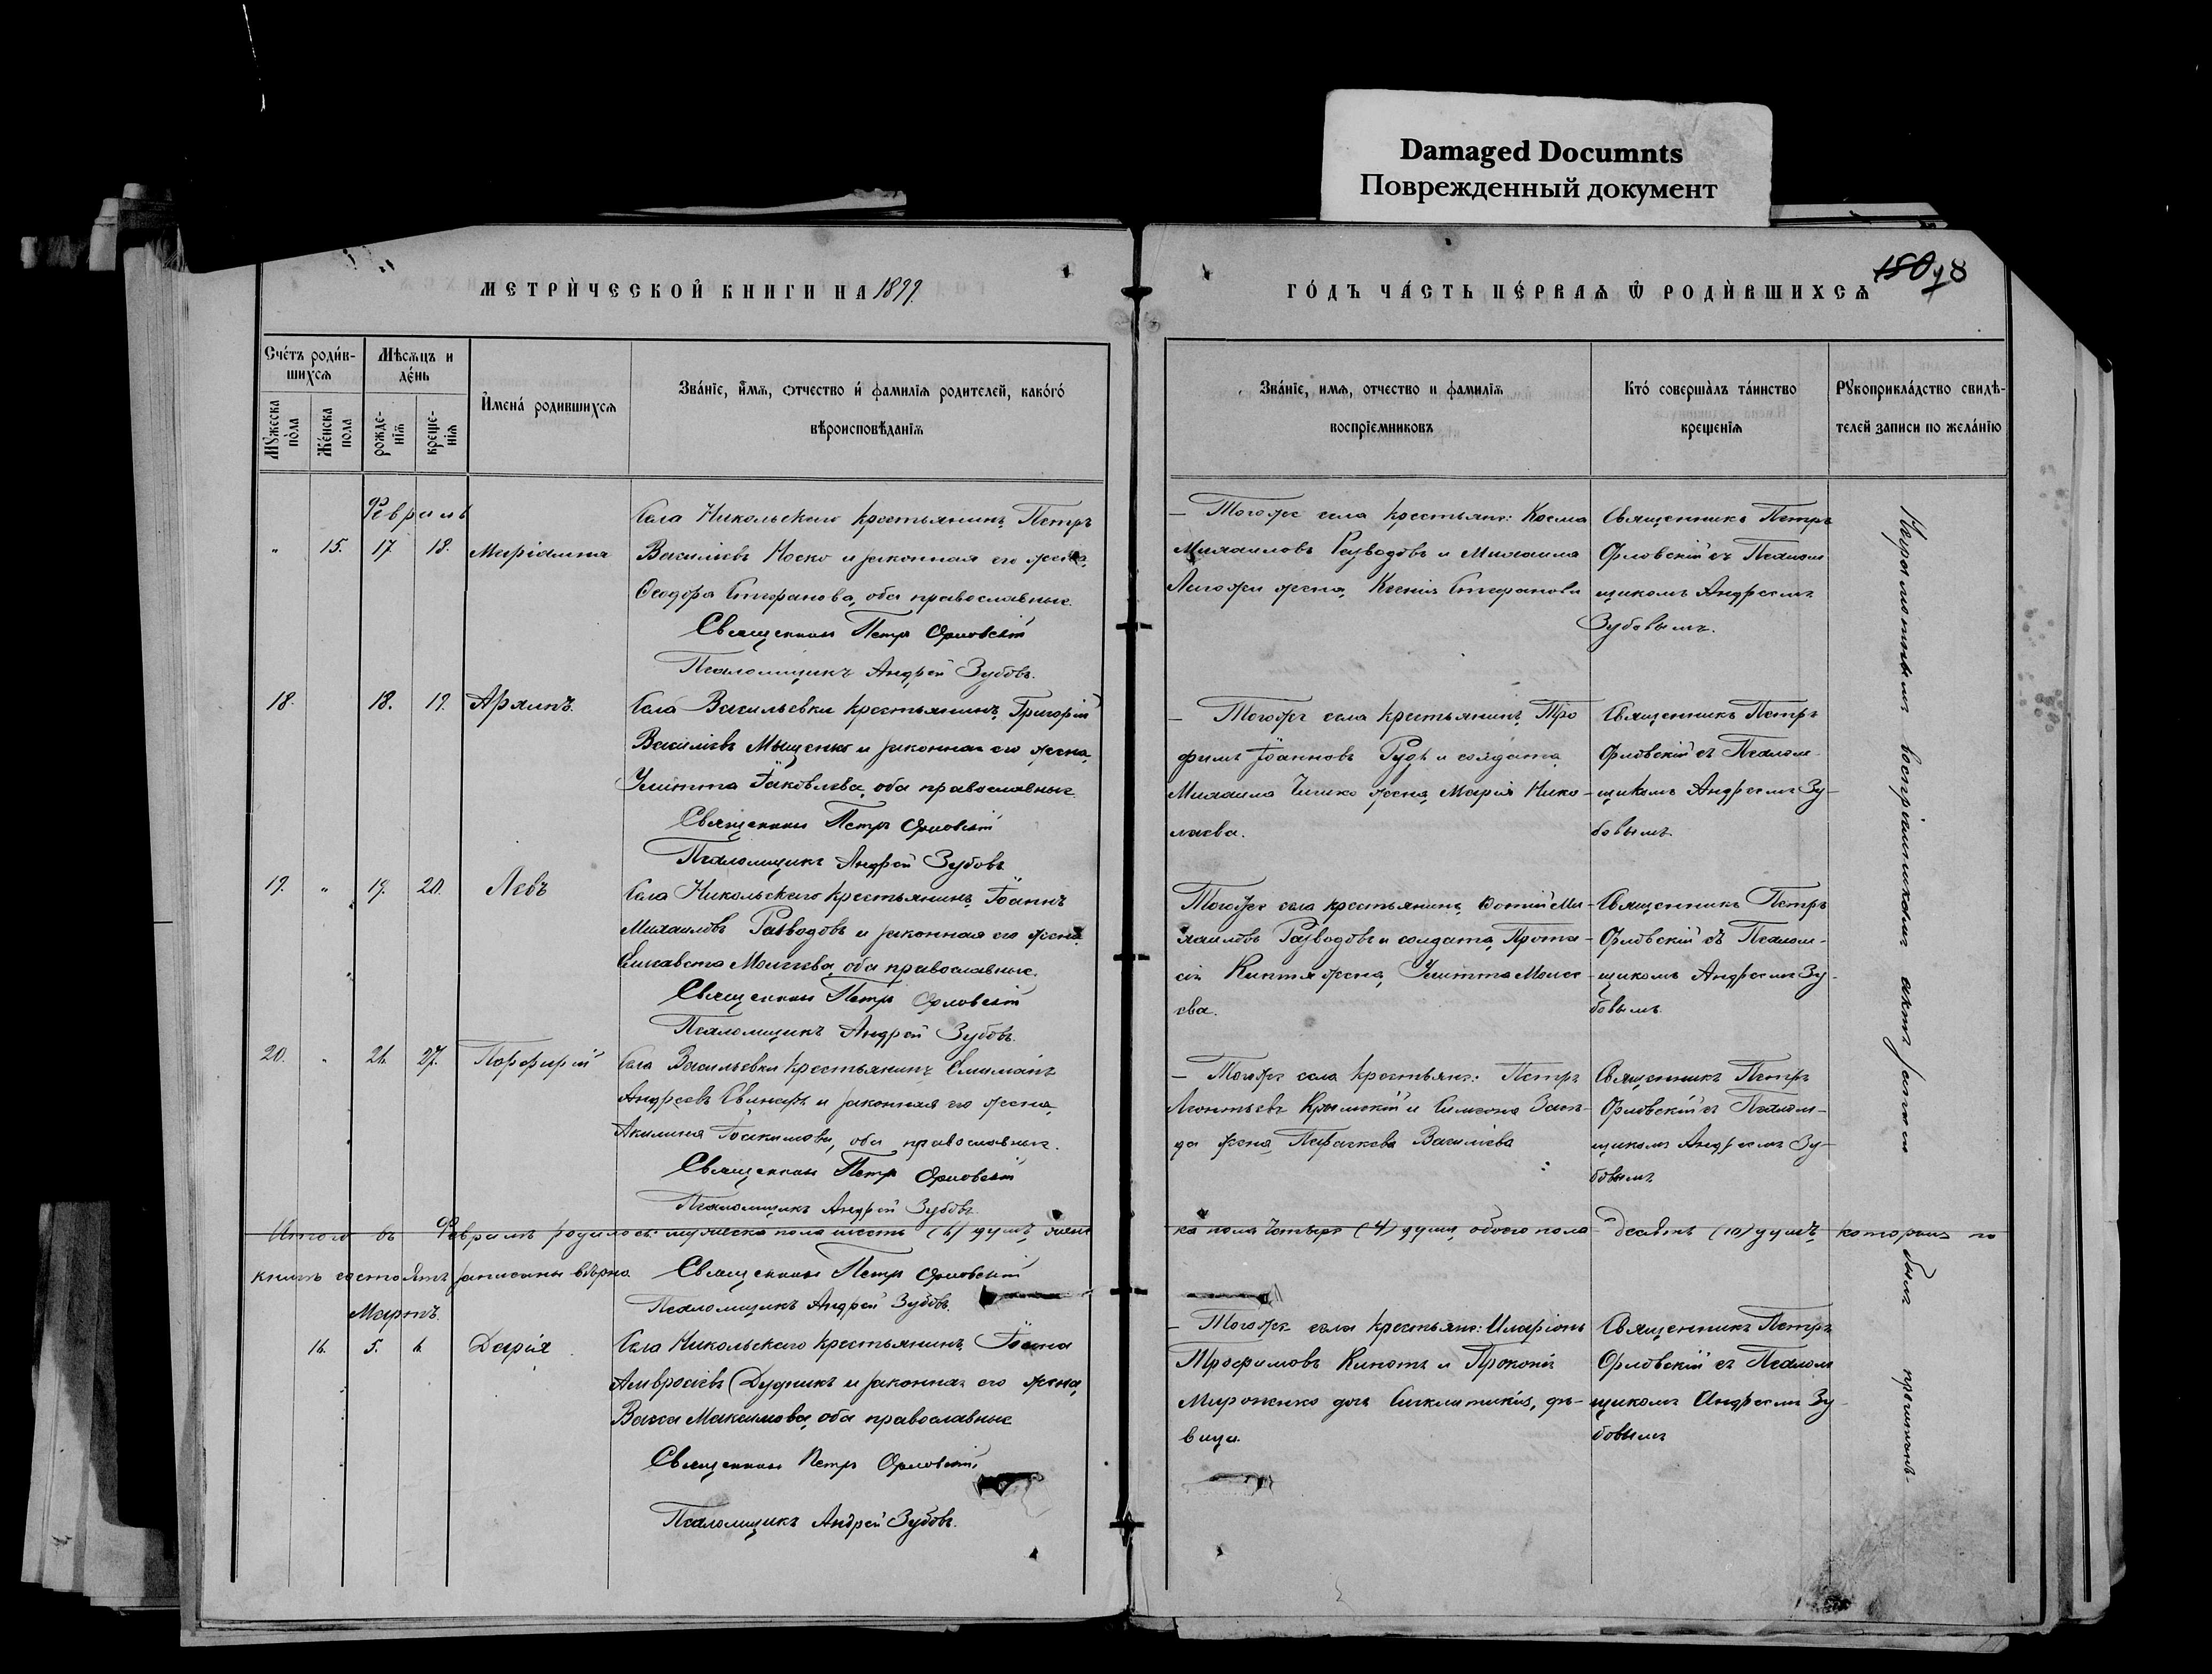 Damaged Documnts
Поврежденный документ
МЕТРИЧЕСКОЙ КНИГИ НА 1899.
ГОДЪ ЧАСТЬ ПЕРВАЯ Ѿ РОДИВШИХСЯ
180 78
Счетъ родив-
шихся
Мѣсяцъ и
день
Мужеска
пола
Женска
пола
рожде-
нія
креще-
нія
Имена родившихся
Званіе, имя, отчество и фамилія родителей, какого
вѣроисповѣданія
Званіе, имя, отчество и фамилія
воспріемниковъ
Кто совершалъ таинство
крещенія
Рукоприкладство свидѣ-
телей записи по желанію
Февраль
" 15. 17. 18. Маріамна
Села Никольскаго крестьянинъ, Петръ
Василіевъ Носко и законная его жена,
Ѳеодора Стефанова, оба православные.
Священникъ Петръ Орловскій
Псаломщикъ Андрей Зубовъ.
Того же села крестьяне: Косма
Михаиловъ Разводовъ и Михаила
жена, Ксенія Стефанова
Священникъ Петръ
Орловскій съ Псалом
щикомъ Андреемъ
Зубовымъ.
18. 18. 19.
Села Васильевки крестьянинъ, Григорій
Василіевъ Мищенко и законная его жена,
Улитта Іаковлева, оба православные.
Священникъ Петръ Орловскій
Псаломщикъ Андрей Зубовъ
Того же села крестьянинъ, Тро
фимъ Іоанновъ Рудь и солдата
Михаила жена, Марія Нико-
лаева.
Священникъ Петръ
Орловскій съ Псалом-
щикомъ Андреемъ Зу-
бовымъ
19. " 19. 20. Левъ
Села Никольскаго крестьянинъ, Іоаннъ
Михаиловъ Разводовъ и законная его жена,
Елисавета Моисеева, оба православные.
Священникъ Петръ Орловскій
Псаломщикъ Андрей Зубовъ.
Того же села крестьянинъ, Фотій Ми-
хаиловъ Разводовъ и солдата, Прота-
сія жена, Улитта Моисе-
ева.
Священникъ Петръ
Орловскій съ Псалом-
щикомъ Андреемъ Зу-
бовымъ
20. " 21. 27. Порфирій
Села Васильевки крестьянинъ
Андреевъ Свинарь и законная его жена,
Акилина Іоакимова, оба православные.
Священникъ Петръ Орловскій
Псаломщикъ Андрей Зубовъ
Того же села крестьяне: Петръ
Леонтьевъ Крымскій и Симеона
жена, Параскева Василіева
Священникъ Петръ
Орловскій съ Псалом-
щикомъ Андреемъ Зу-
бовымъ
Итого въ Февралѣ родилось: мужеска пола шесть (6) душъ, женс
ка пола четыре (4) души, обоего пола десять (10) душъ, которые по
книгѣ записаны вѣрно.
Священникъ Петръ Орловскій
Псаломщикъ Андрей Зубовъ.
Мартъ.
16. 5. 6. Дарія
Села Никольскаго крестьянинъ,
Амвросіевъ Дудникъ и законная его жена,
Васса Максимова, оба православные
Священникъ Петръ Орловскій
Псаломщикъ Андрей Зубовъ.
Того же села крестьяне: Иларіонъ
Трофимовъ и Прокопія
Мироненко дочь Синклитикія, дѣ-
вица.
Священникъ Петръ
Орловскій съ Псалом
щикомъ Андреемъ Зу
бовымъ
воспріемникомъ актъ былъ